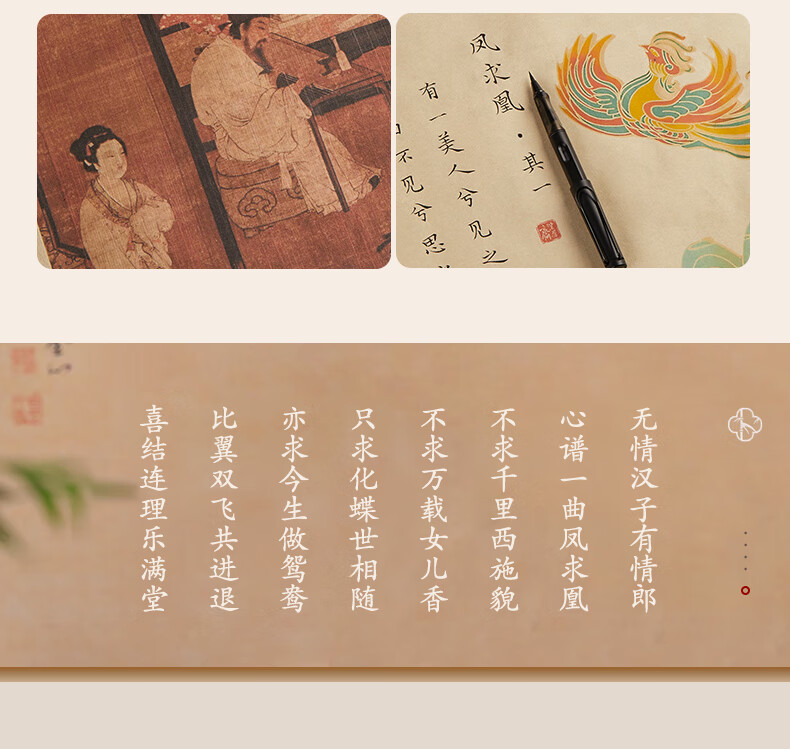 凤求凰·其一
有一美人兮见之
不见兮思
无情汉子有情郎
心谱一曲凤求凰
不求千里西施貌
不求万载女儿香
只求化蝶世相随
亦求今生做鸳鸯
比翼双飞共进退
喜结连理乐满堂